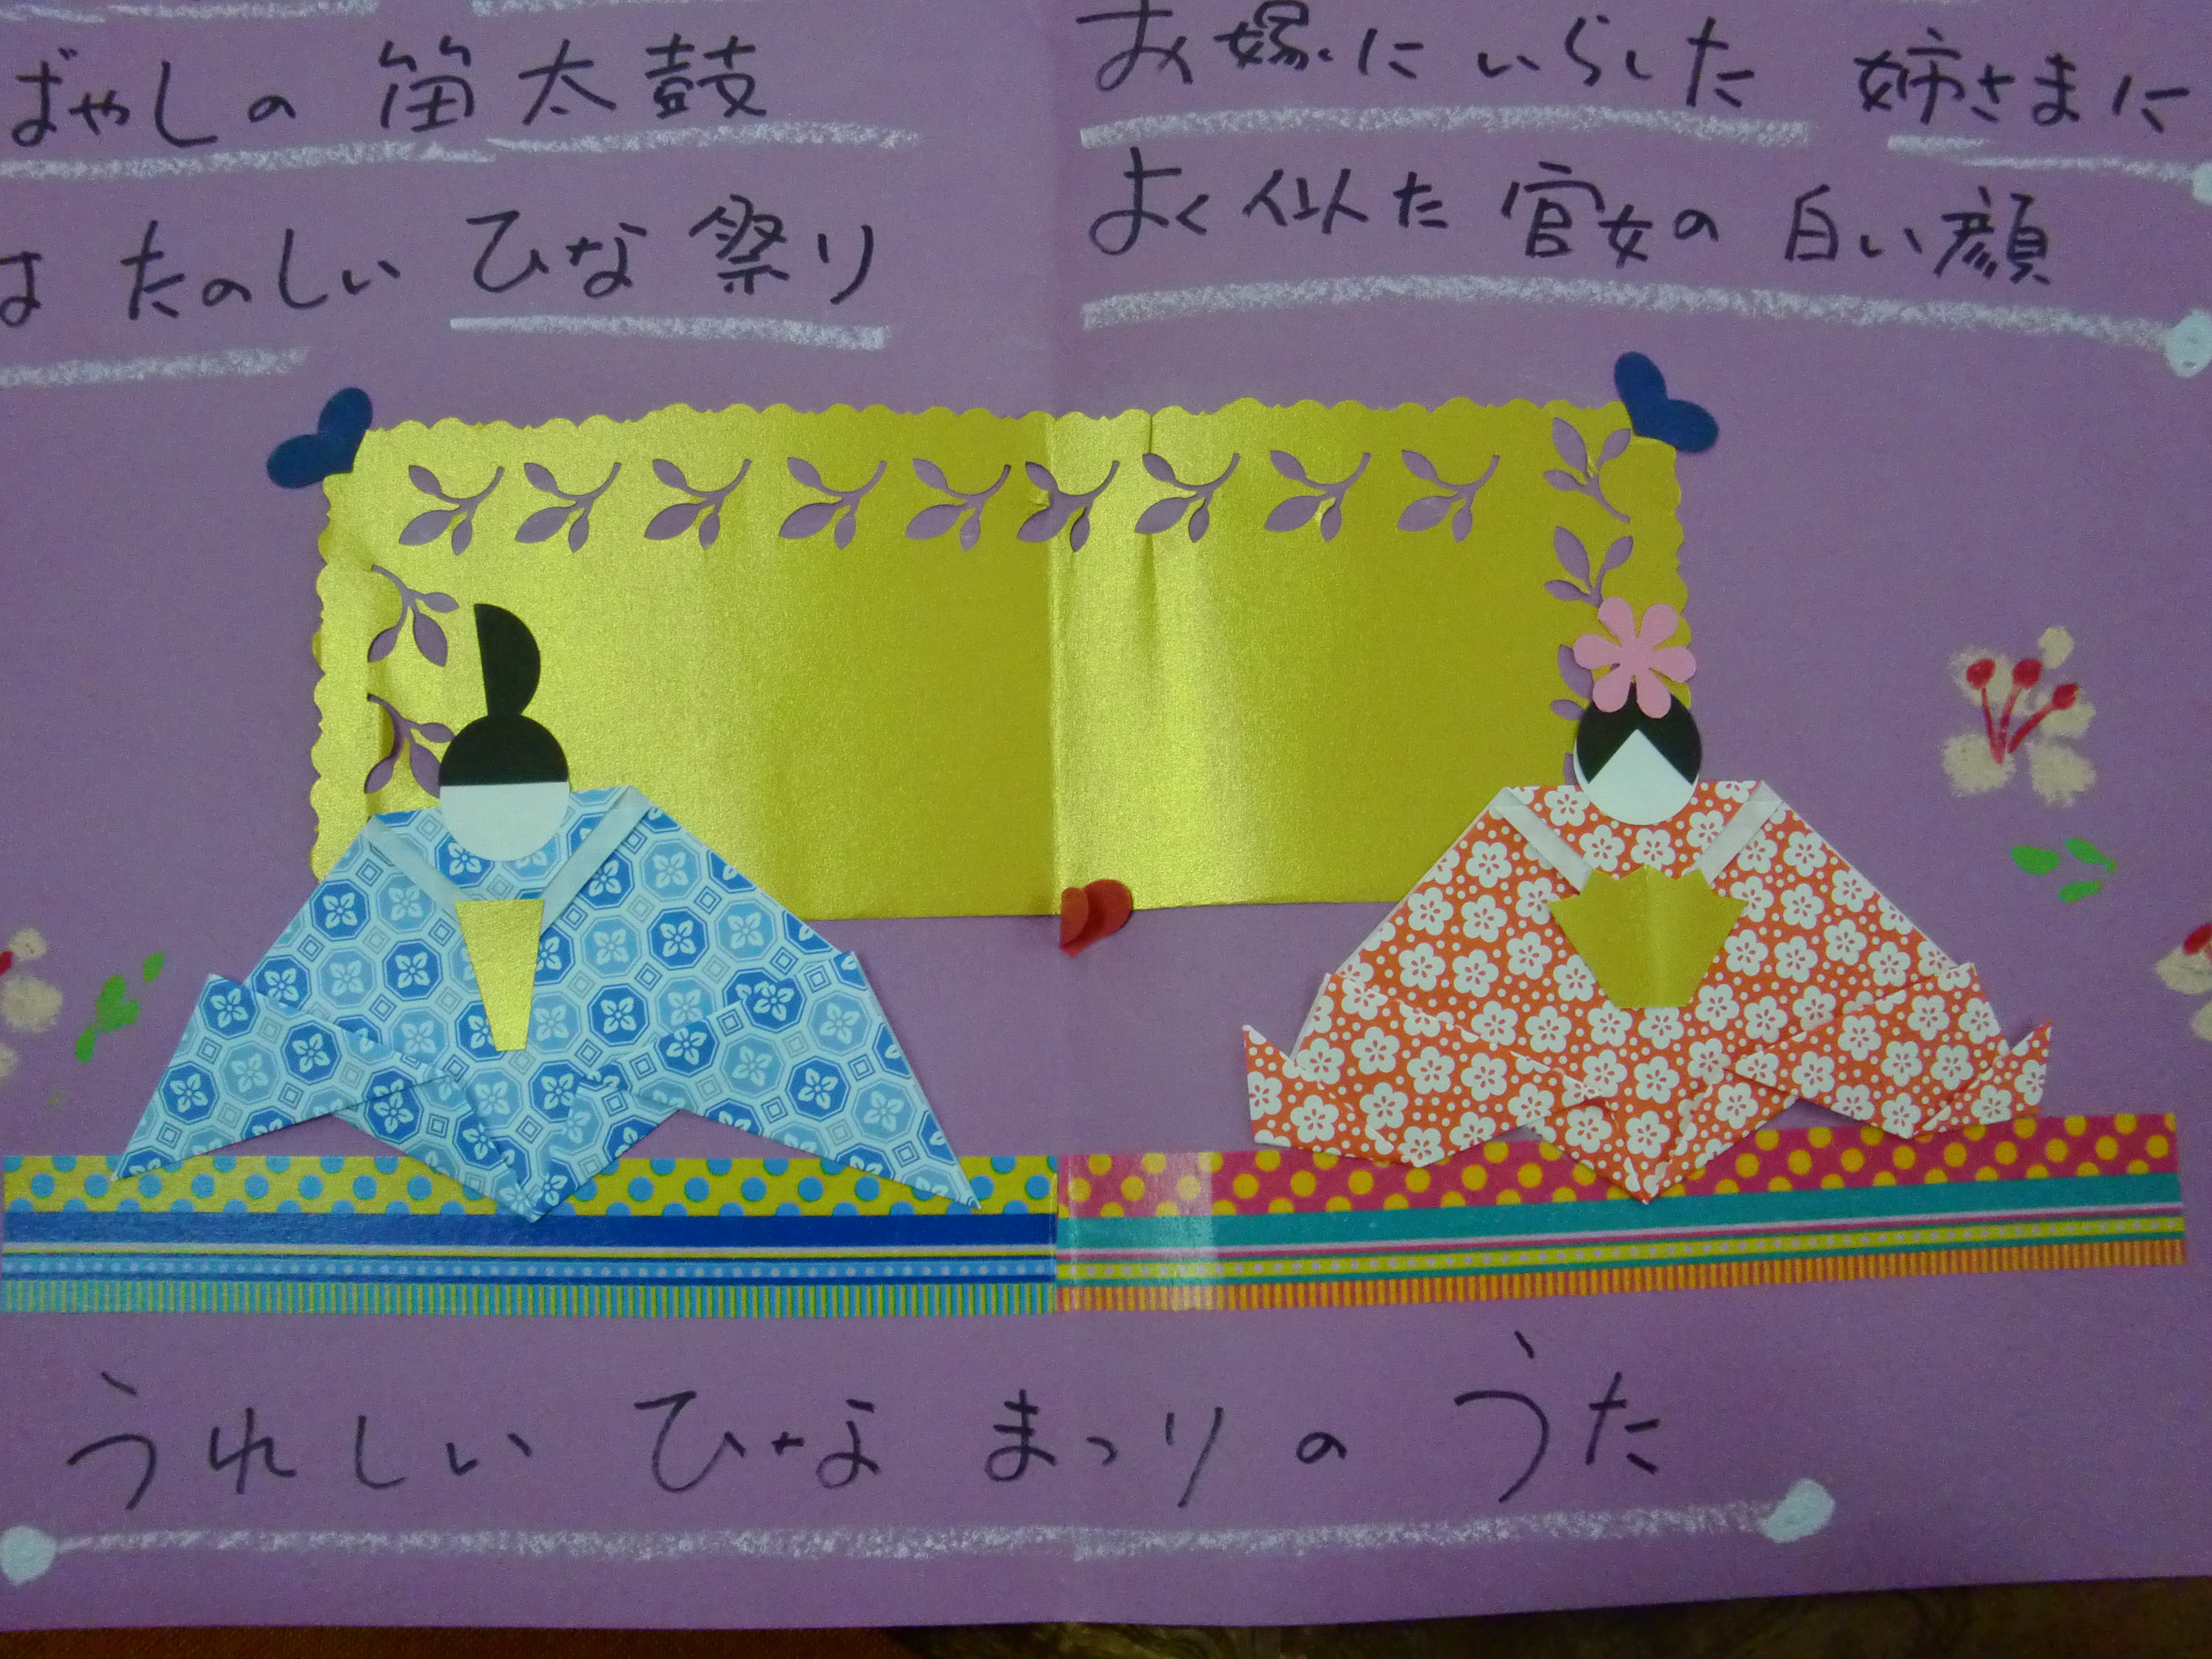 ばやしの 笛太鼓
は たのしい ひな祭り
お嫁に いらした 姉さまに
よく似た 官女の 白い顔
うれしい ひな まつり の うた